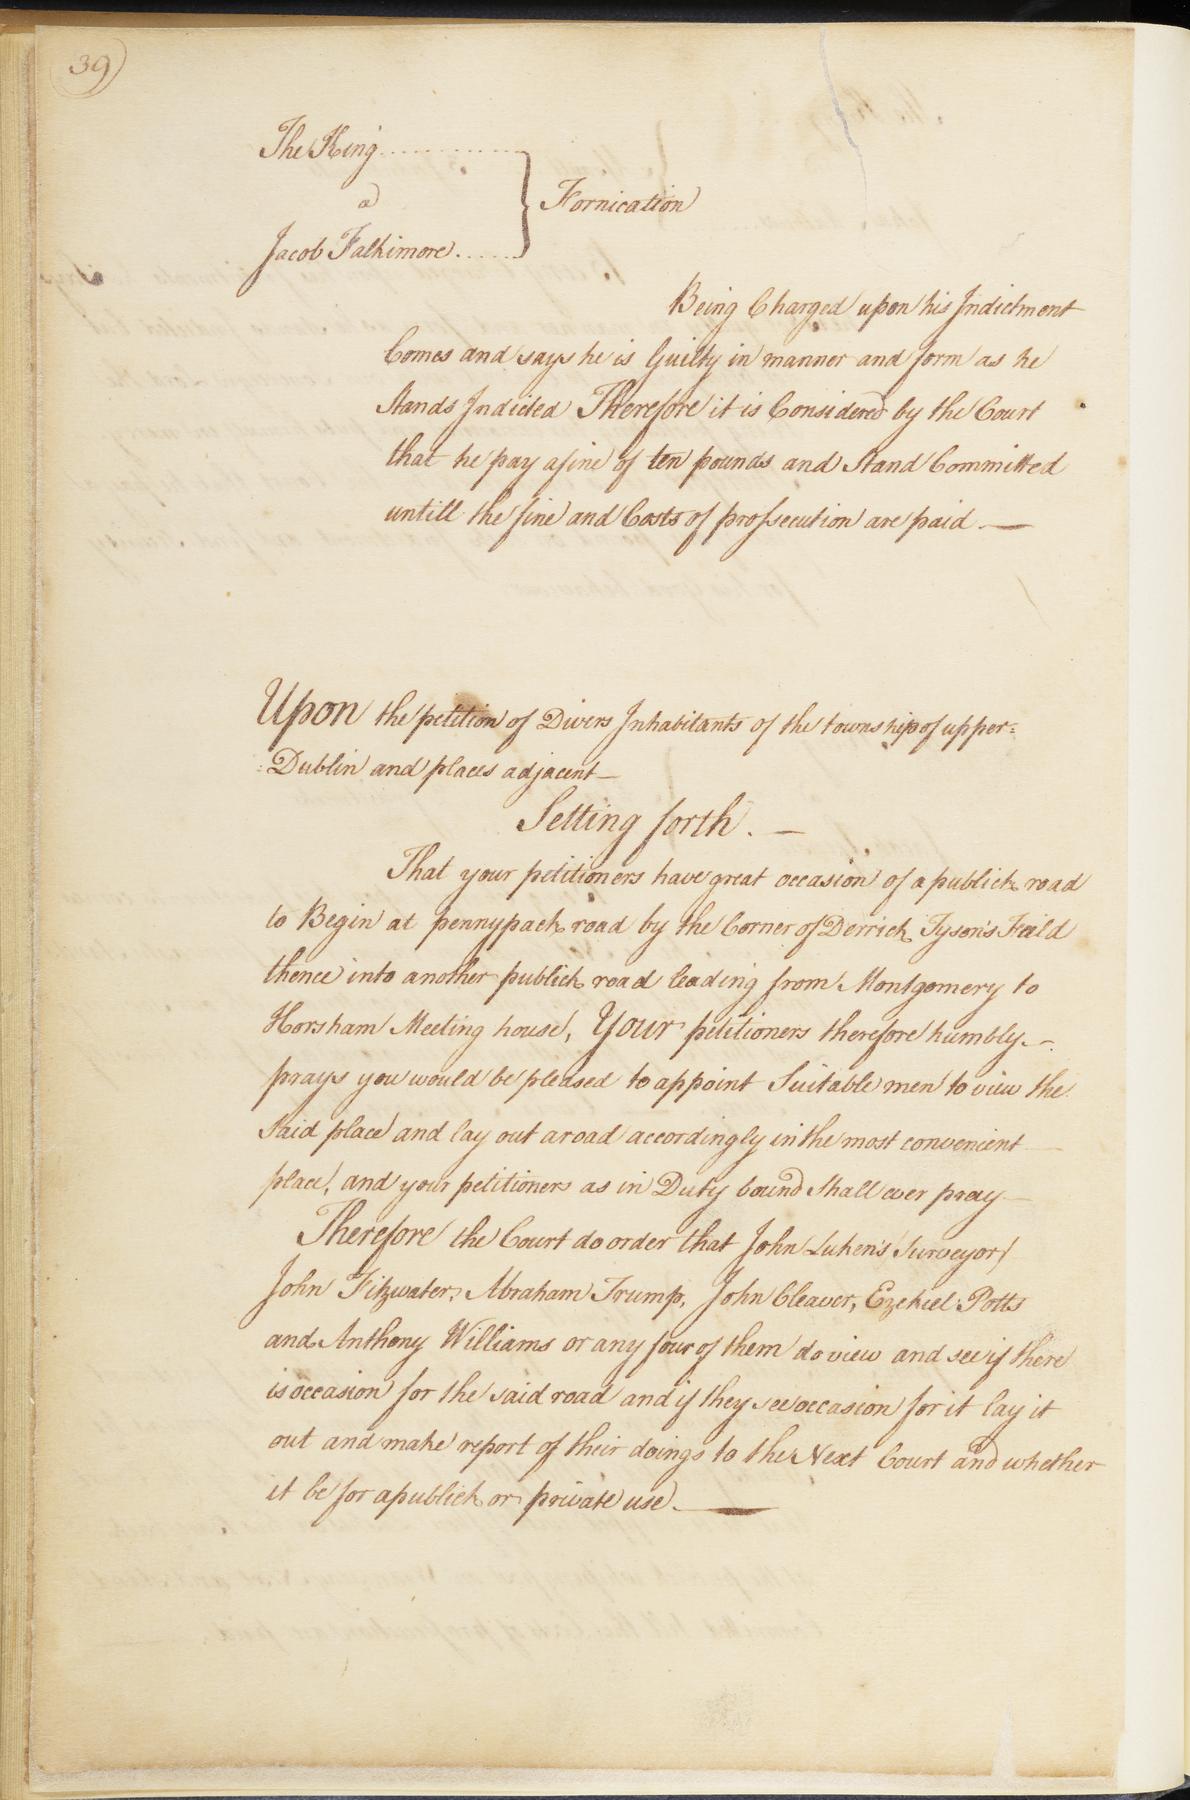 39
The King
a
Jacob Falkimore
Fornication
Being Charged upon his Indictment
Comes and says he is Guilty in manner and form as he
Stands Indicted Therefore it is Considered by the Court
that he pay a fine of ten pounds and Stand Committed
untill the fine and Costs of prossecution are paid. —
Upon the petition of Divers Inhabitants of the township of upper=
=Dublin and places adjacent —
Setting forth. —
That your petitioners have great occasion of a publick road
to Begin at pennypack road by the Corner of Derrick Tyson's Feild
thence into another publick road leading from Montgomery to
Horsham Meeting house, Your petitioners therefore humbly
prays you would be pleased to appoint Suitable men to view the
Said place and lay out a road accordingly in the most convenient
place, and your petitioners as in Duty bound Shall ever pray —
Therefore the Court do order that John Luken's (Surveyor)
John Fitzwater, Abraham Trump, John Cleaver, Ezekiel Potts
and Anthony Williams or any four of them do view and see if there
is occasion for the said road and if they see occasion for it lay it
out and make report of their doings to the Next Court and whether
it be for a publick or private use. —